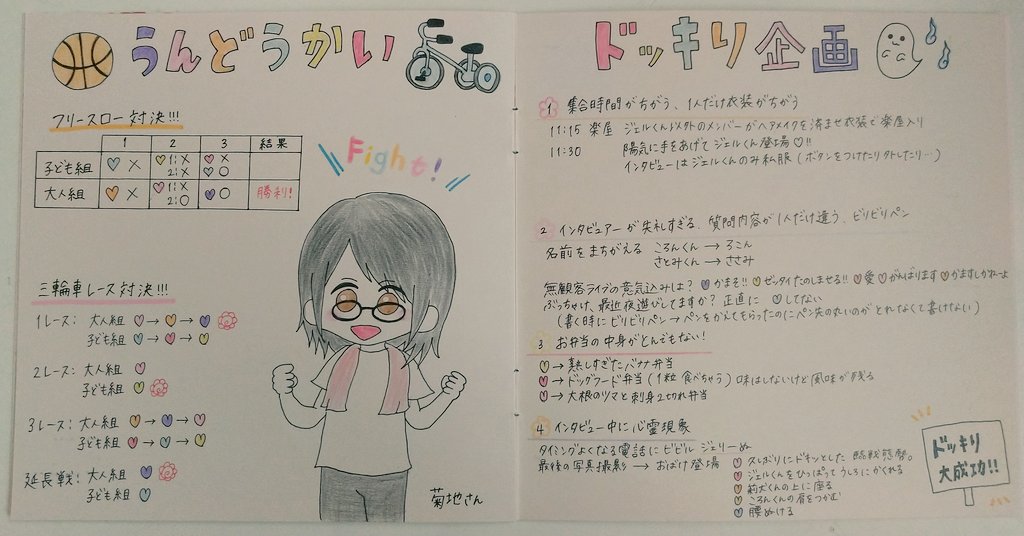 うんどうかい
フリースロー対決!!!
1 2 3 結果
子ども組 × 1:× 2:× × ○
大人組 × 1:× 2:○ ○ 勝利!
Fight!
三輪車レース対決!!!
1レース: 大人組 → →
子ども組 → →
2レース: 大人組
子ども組
3レース: 大人組 → →
子ども組 → →
延長戦: 大人組
子ども組
菊地さん
ドッキリ企画
1 集合時間がちがう、1人だけ衣装がちがう
11:15 楽屋 ジェルくん以外のメンバーがヘアメイクを済ませ衣装で楽屋入り
11:30 陽気に手をあげてジェルくん登場♡!!
インタビューはジェルくんのみ私服(ボタンをつけたり外したり…)
2 インタビュアーが失礼すぎる、質問内容が1人だけ違う、ビリビリペン
名前をまちがえる ころんくん→ろこん
さとみくん→ささみ
無観客ライブの意気込みは? かまる!! ゼッタイたのしませる!! 愛♡がんばります かますしかねーよ
ぶっちゃけ、最近夜遊びしてますか?正直に してない
(書く時にビリビリペン→ペンをかえてもらったのにペン先の丸いのがとれなくて書けない)
3 お弁当の中身がとんでもない!
→熟しすぎたバナナ弁当
→ドッグフード弁当(1粒食べちゃう)味はしないけど風味が残る
→大根のツマと刺身2切れ弁当
4 インタビュー中に心霊現象
タイミングよくなる電話にビビルジェリーぬ
最後の写真撮影→おばけ登場
久しぶりにドキッとした 臨戦態勢。
ジェルくんをひっぱってうしろにかくれる
莉犬くんの上に座る
ころんくんの肩をつかむ
腰ぬける
ドッキリ
大成功!!